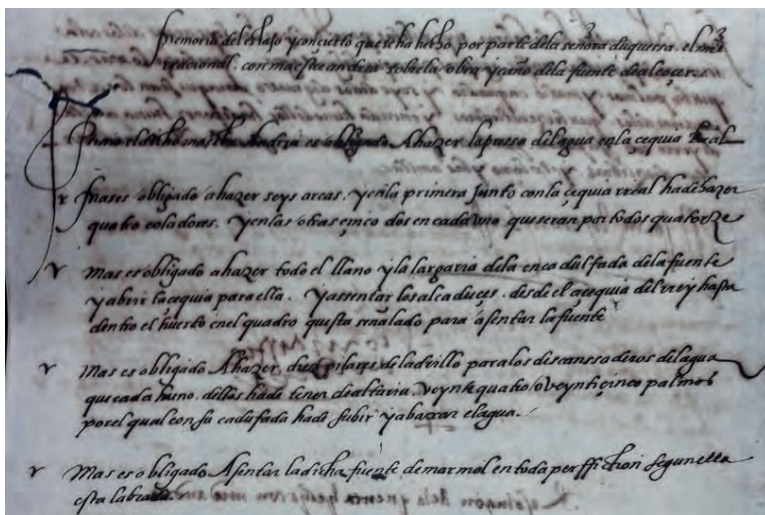 memoria del estajo y concierto que se ha hecho por parte dela señora duquessa. el mes
racional. con maestre andrea sobre la obra y caño dela fuente de alcoçer.
Primo el dicho maestre Andrea es obligado A hazer la pressa del agua en la çequia Real
Mas es obligado a hazer seys arcas. y en la primera Junto con la çequia rreal ha de hazer
quatro coladores. y en las otras çinco dos en cada uno que seran por todos quatorze
Mas es obligado a hazer todo el llano y la largaria dela encadulfada dela fuente
y abrir la çequia para ella. y assentar los alcaduçes. desde el açequia del rrey hasta
dentro el huerto en el quadro questa señalado para asentar la fuente
Mas es obligado A hazer diez pilares de ladrillo para los descanssaderos del agua
que cada huno. dellos ha de tener de altaria. veynte quatro o veynti çinco palmos
por el qual con su cadufada ha de subir y abaxar el agua.
Mas es obligado A sentar la dicha fuente de marmol en toda perffiction segun ella
esta labrada.